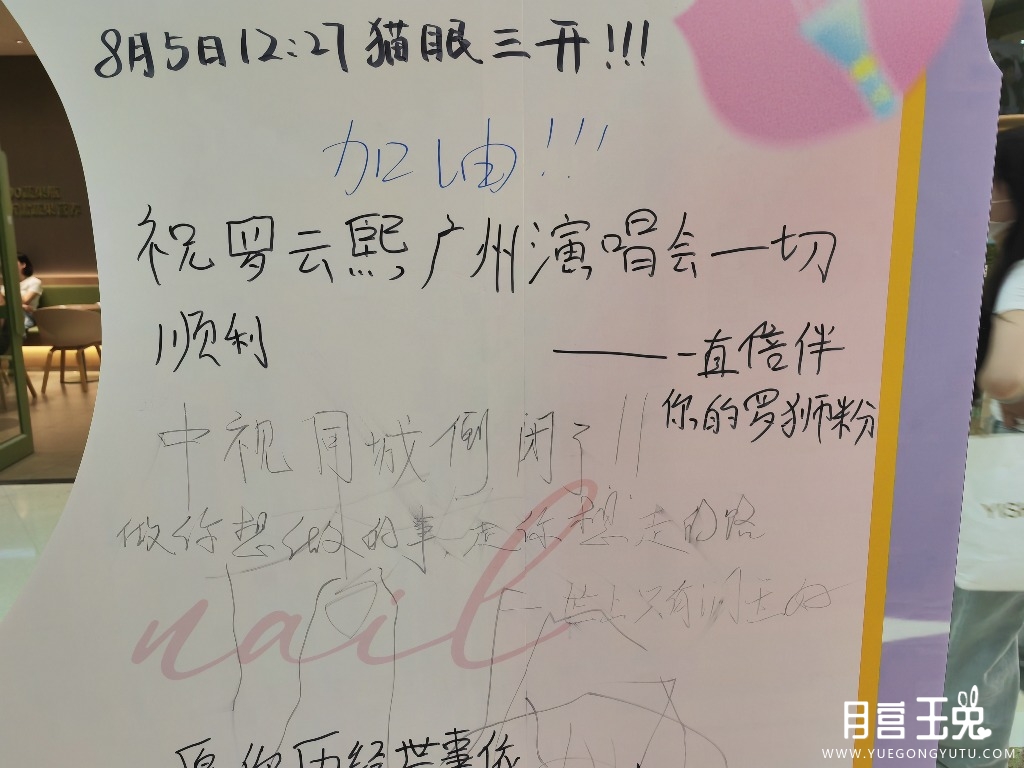 8月5日12:27猫眼三开!!!
加油!!!
祝罗云熙广州演唱会一切
顺利
——一直倍伴
你的罗狮粉
中视同城倒闭了!!
做你想做的事,走你想走的路
nail
愿你历经世事依
月宫玉兔
WWW.YUEGONGYUTU.COM